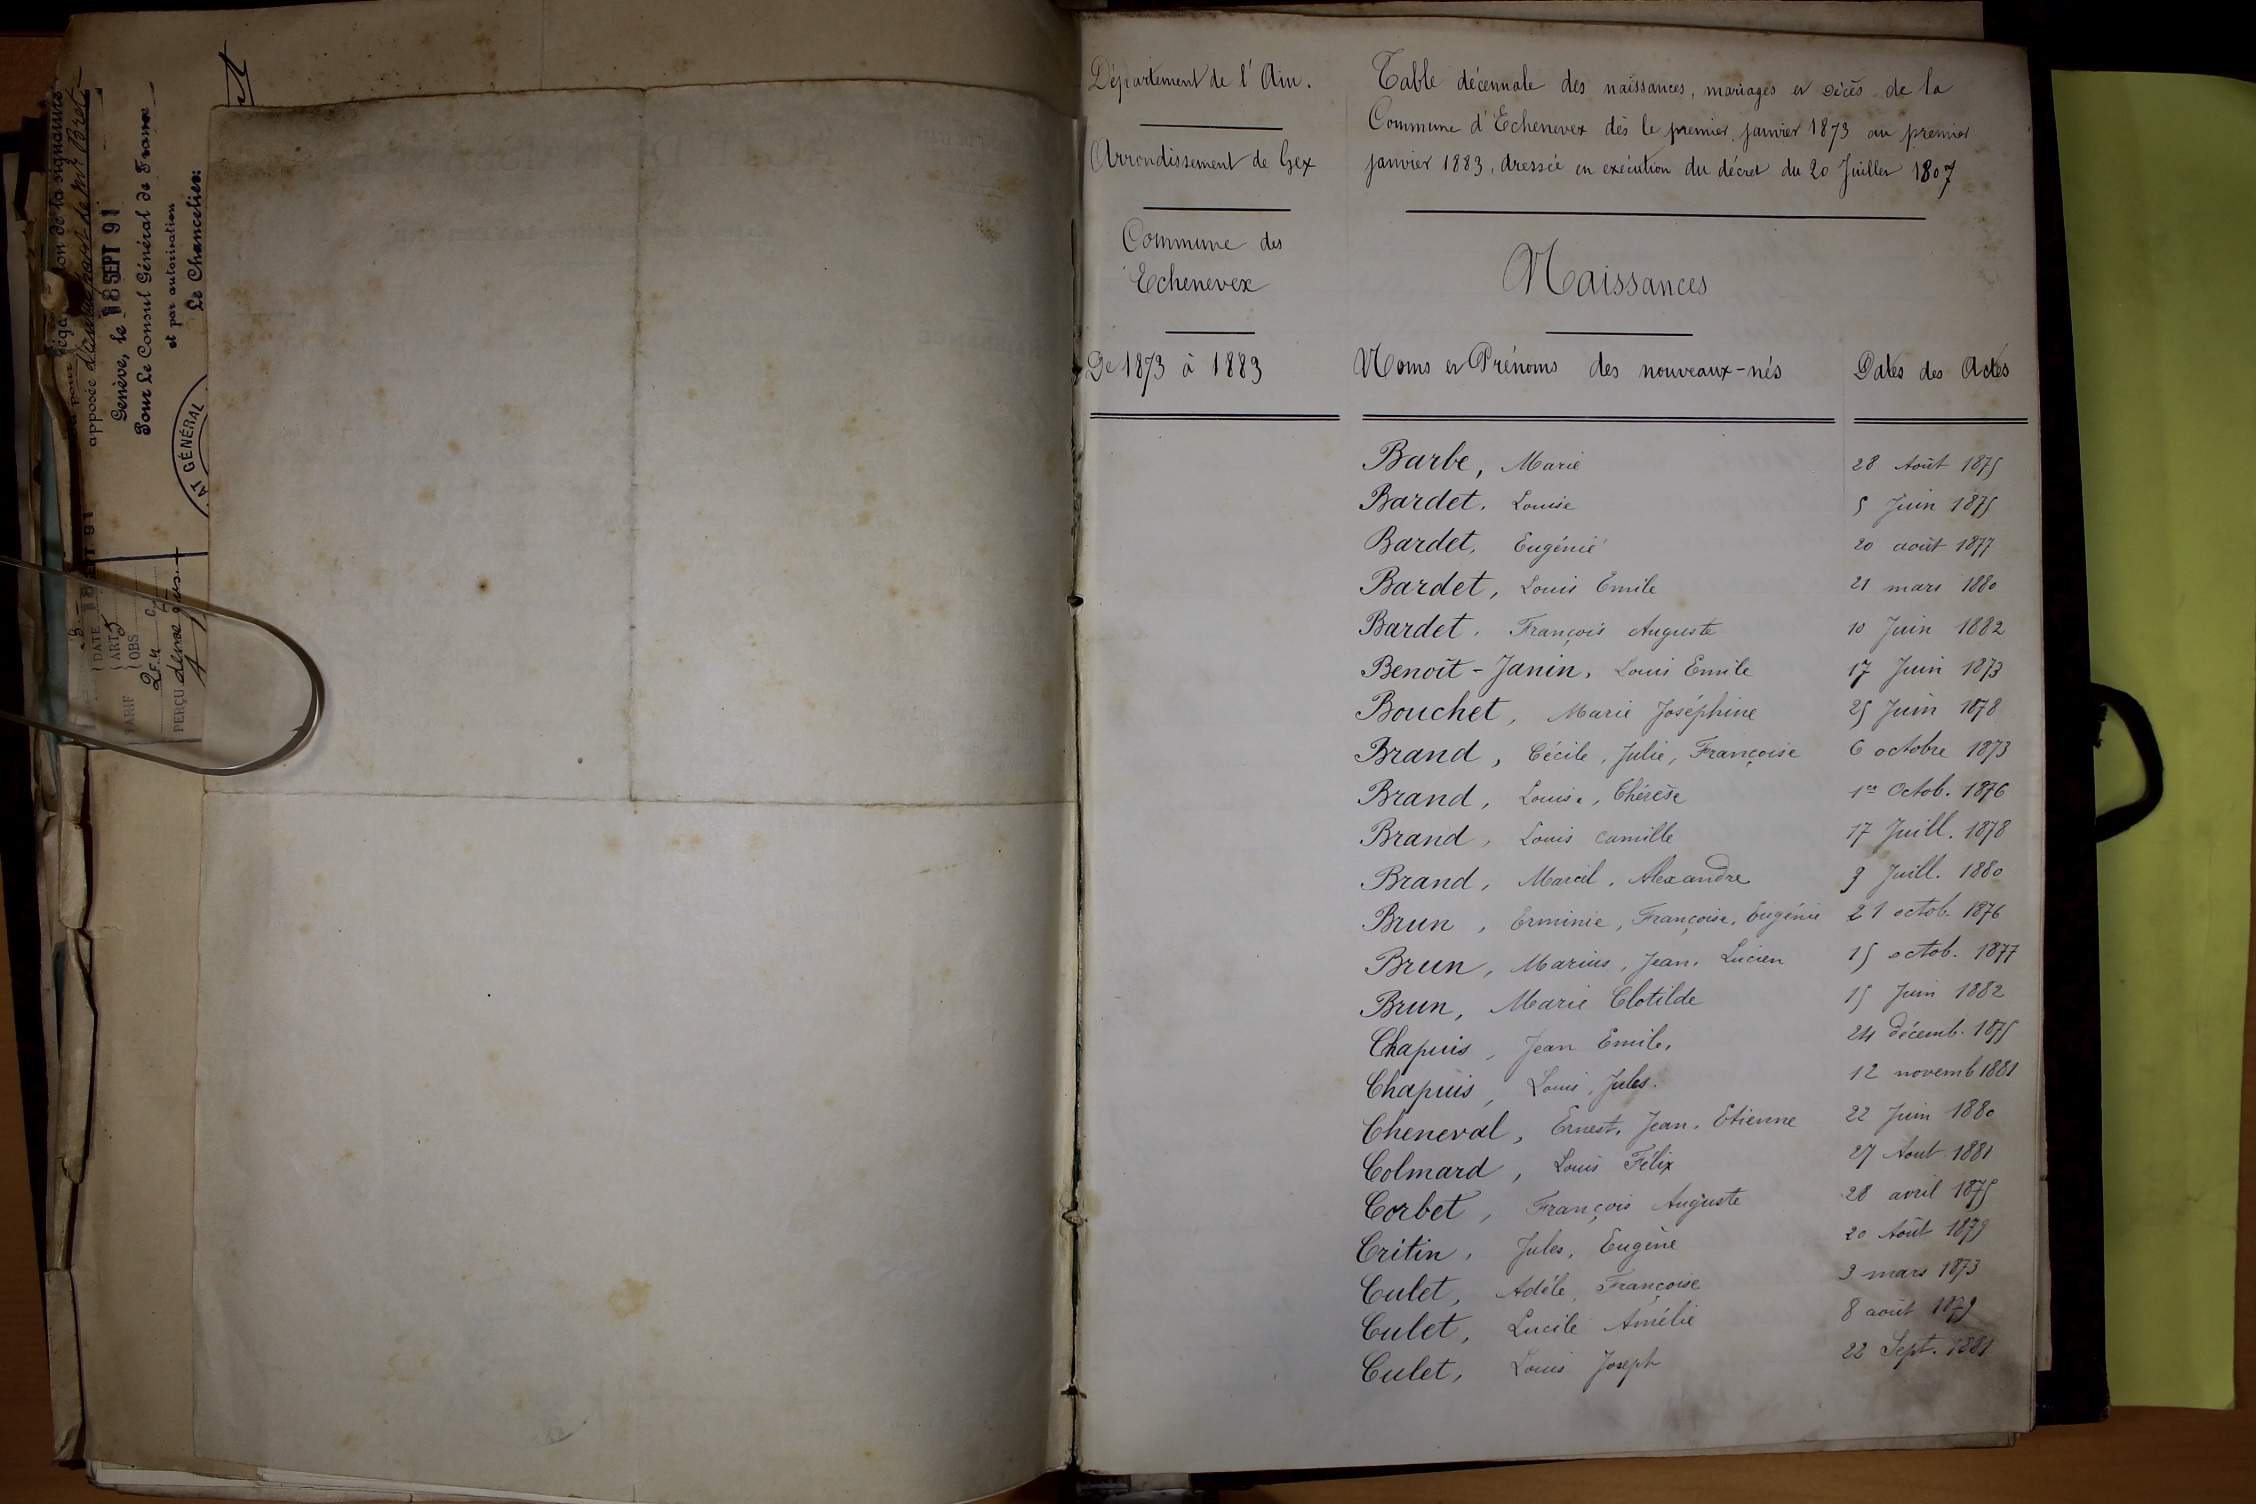 apposée
Genève, le 18 SEPT 91
Pour Le Consul Général de France
et par autorisation
Le Chancelier:
AT GÉNÉRAL
DATE
ART 5
OBS
PERÇU
Département de l'Ain.
Arrondissement de Gex
Commune des
Echenevex
De 1873 à 1883
Table décennale des naissances, mariages et décès de la
Commune d'Echenevex dès le premier janvier 1873 au premier
janvier 1883, dressée en exécution du décret du 20 Juillet 1807
Naissances
Noms et Prénoms des nouveaux-nés Dates des Actes
Barbe, Marie 28 Août 1875
Bardet, Louise 5 Juin 1875
Bardet, Eugénie 20 août 1877
Bardet, Louis Emile 21 mars 1880
Bardet, François Auguste 10 Juin 1882
Benoît-Janin, Louis Emile 17 Juin 1873
Bouchet, Marie Joséphine 25 Juin 1878
Brand, Cécile, Julie, Françoise 6 octobre 1873
Brand, Louise, Thérèse 1er Octob. 1876
Brand, Louis Camille 17 Juill. 1878
Brand, Marcel, Alexandre 9 Juill. 1880
Brun, Erminie, Françoise, Eugénie 21 octob. 1876
Brun, Marius, Jean, Lucien 15 octob. 1877
Brun, Marie Clotilde 15 Juin 1882
Chapuis, Jean Emile, 24 décemb. 1875
Chapuis, Louis, Jules. 12 novemb 1881
Cheneval, Ernest, Jean, Etienne 22 Juin 1880
Colmard, Louis Félix 27 Aout 1881
Corbet, François Auguste 28 avril 1875
Critin, Jules, Eugène 20 Août 1879
Culet, Adèle, Françoise 3 mars 1873
Culet, Lucile Amélie 8 août 1879
Culet, Louis Joseph 22 Sept. 1881